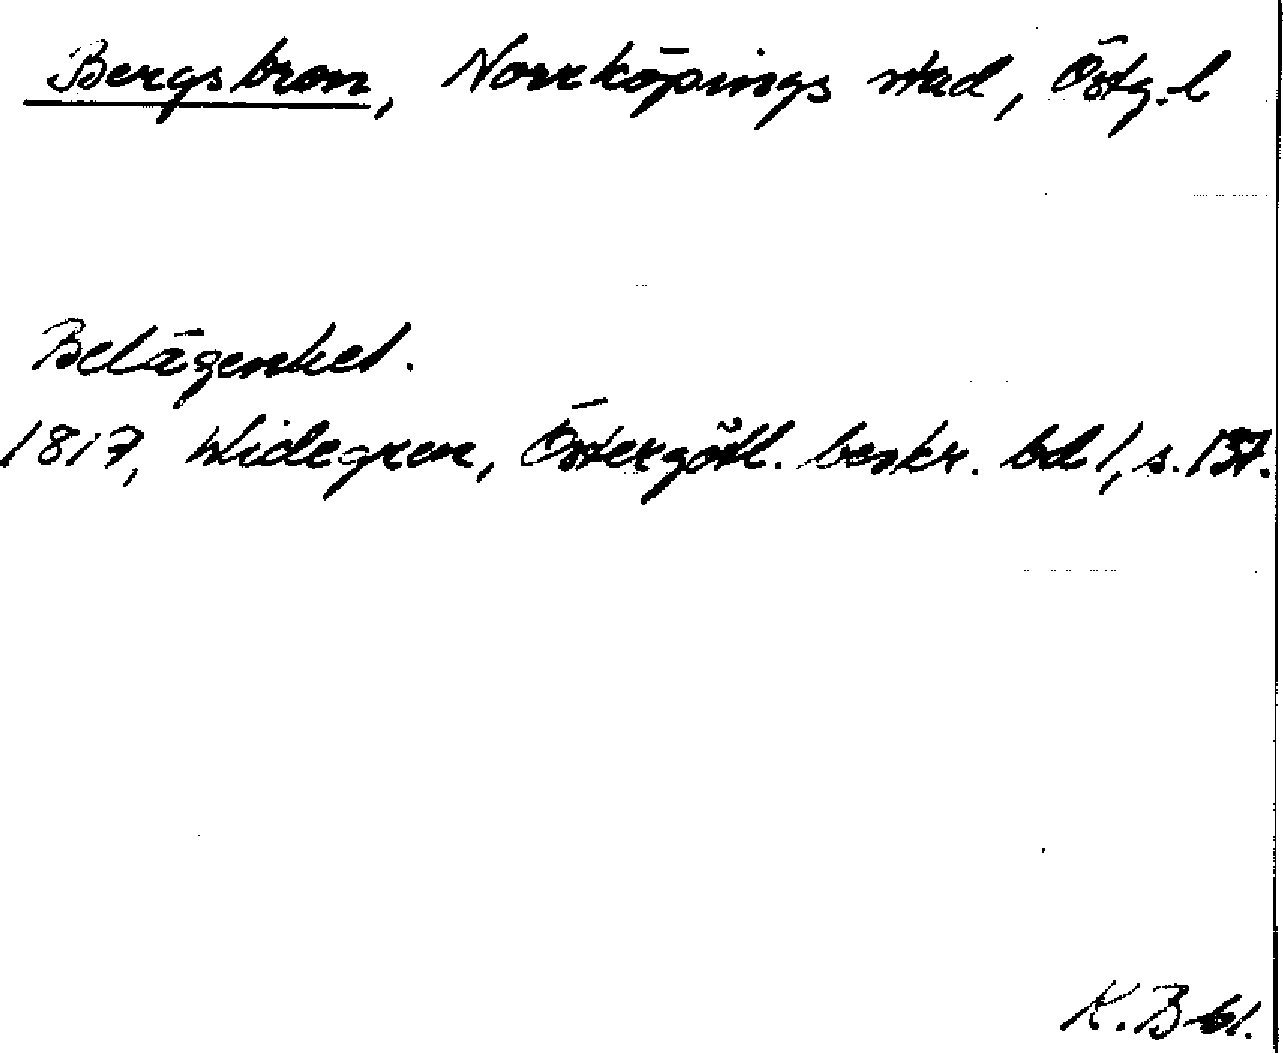 Bergsbron, Norrköpings stad, Östg.l
Belägenhet.
1817, Widegren, Östergötl. beskr. bd 1, s. 137.
K. B-bl.